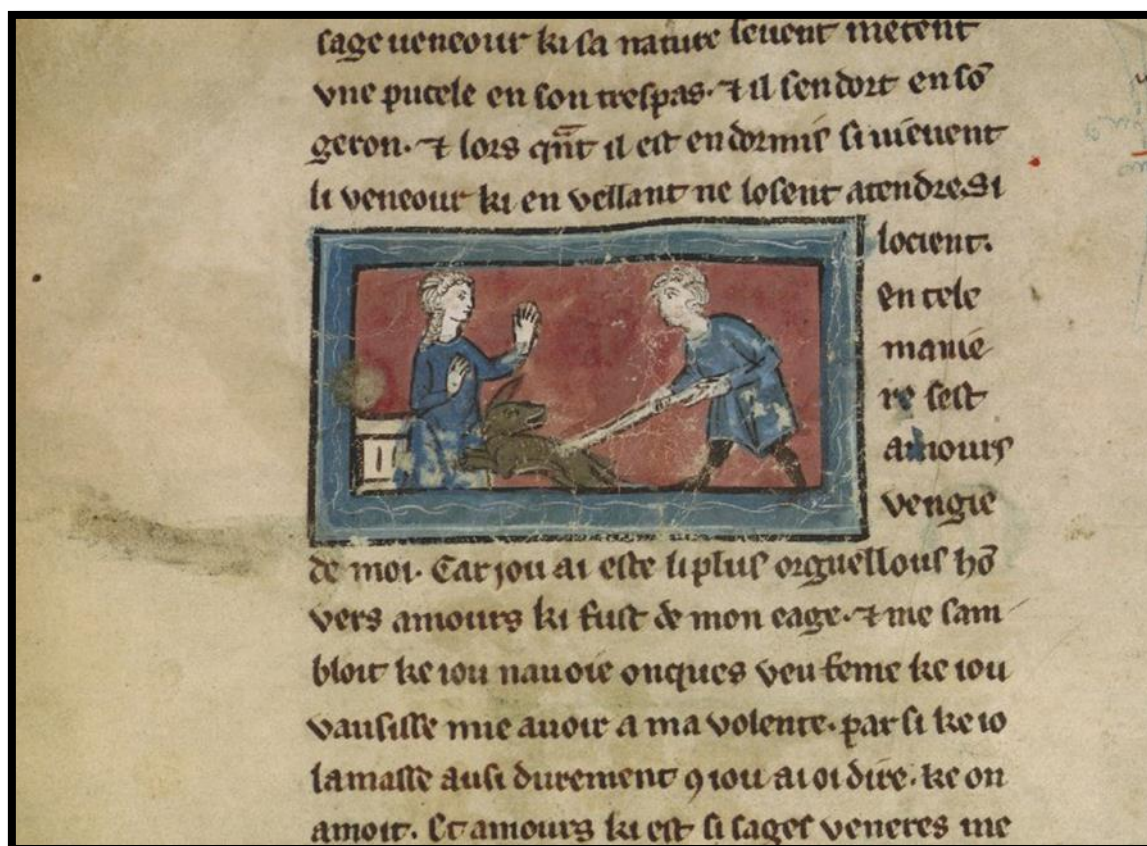 sage ueneour ki sa nature seuent metent
vne pucele en son trespas. ⁊ il sendort en sō
geron. ⁊ lors qn̄t il est endormis si uienent
li veneour ki en vellant ne losent atendre. Si
locient.
en cele
manie
re sest
amours
vengie
de moi. Car iou ai este li plus orguellous hō
vers amours ki fust de mon eage. ⁊ me sam
bloit ke iou nauoie onques veu feme ke iou
vausisse mie auoir a ma volente. par si ke io
lamasse ausi durement ꝯ iou ai oi dire. ke on
amoit. Et amours ki est si sages veneres me